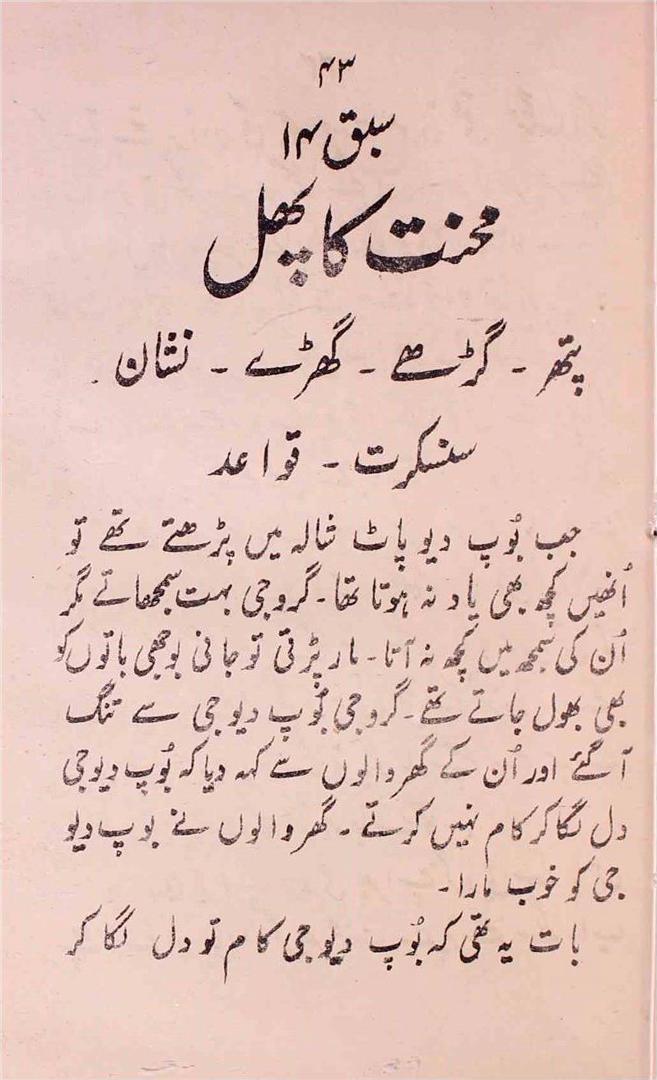 ۴۳
سبق ۱۴
محنت کا پھل
پتھر ۔ گڑھے ۔ گھڑے ۔ نشان ۔
سنسکرت ۔ قواعد
جب بُوپ دیو پاٹ شالہ میں پڑھتے تھے تو
اُنھیں کچھ بھی یاد نہ ہوتا تھا۔ گرو جی بہت سمجھاتے مگر
اُن کی سمجھ میں کچھ نہ آتا۔ مار پڑتی تو جانی بوجھی باتوں کو
بھی بھول جاتے تھے۔ گرو جی بُوپ دیو جی سے تنگ
آ گئے اور اُن کے گھر والوں سے کہہ دیا کہ بُوپ دیو جی
دل لگا کر کام نہیں کرتے ۔ گھر والوں نے بوپ دیو
جی کو خوب مارا۔
بات یہ تھی کہ بُوپ دیو جی کام تو دل لگا کر